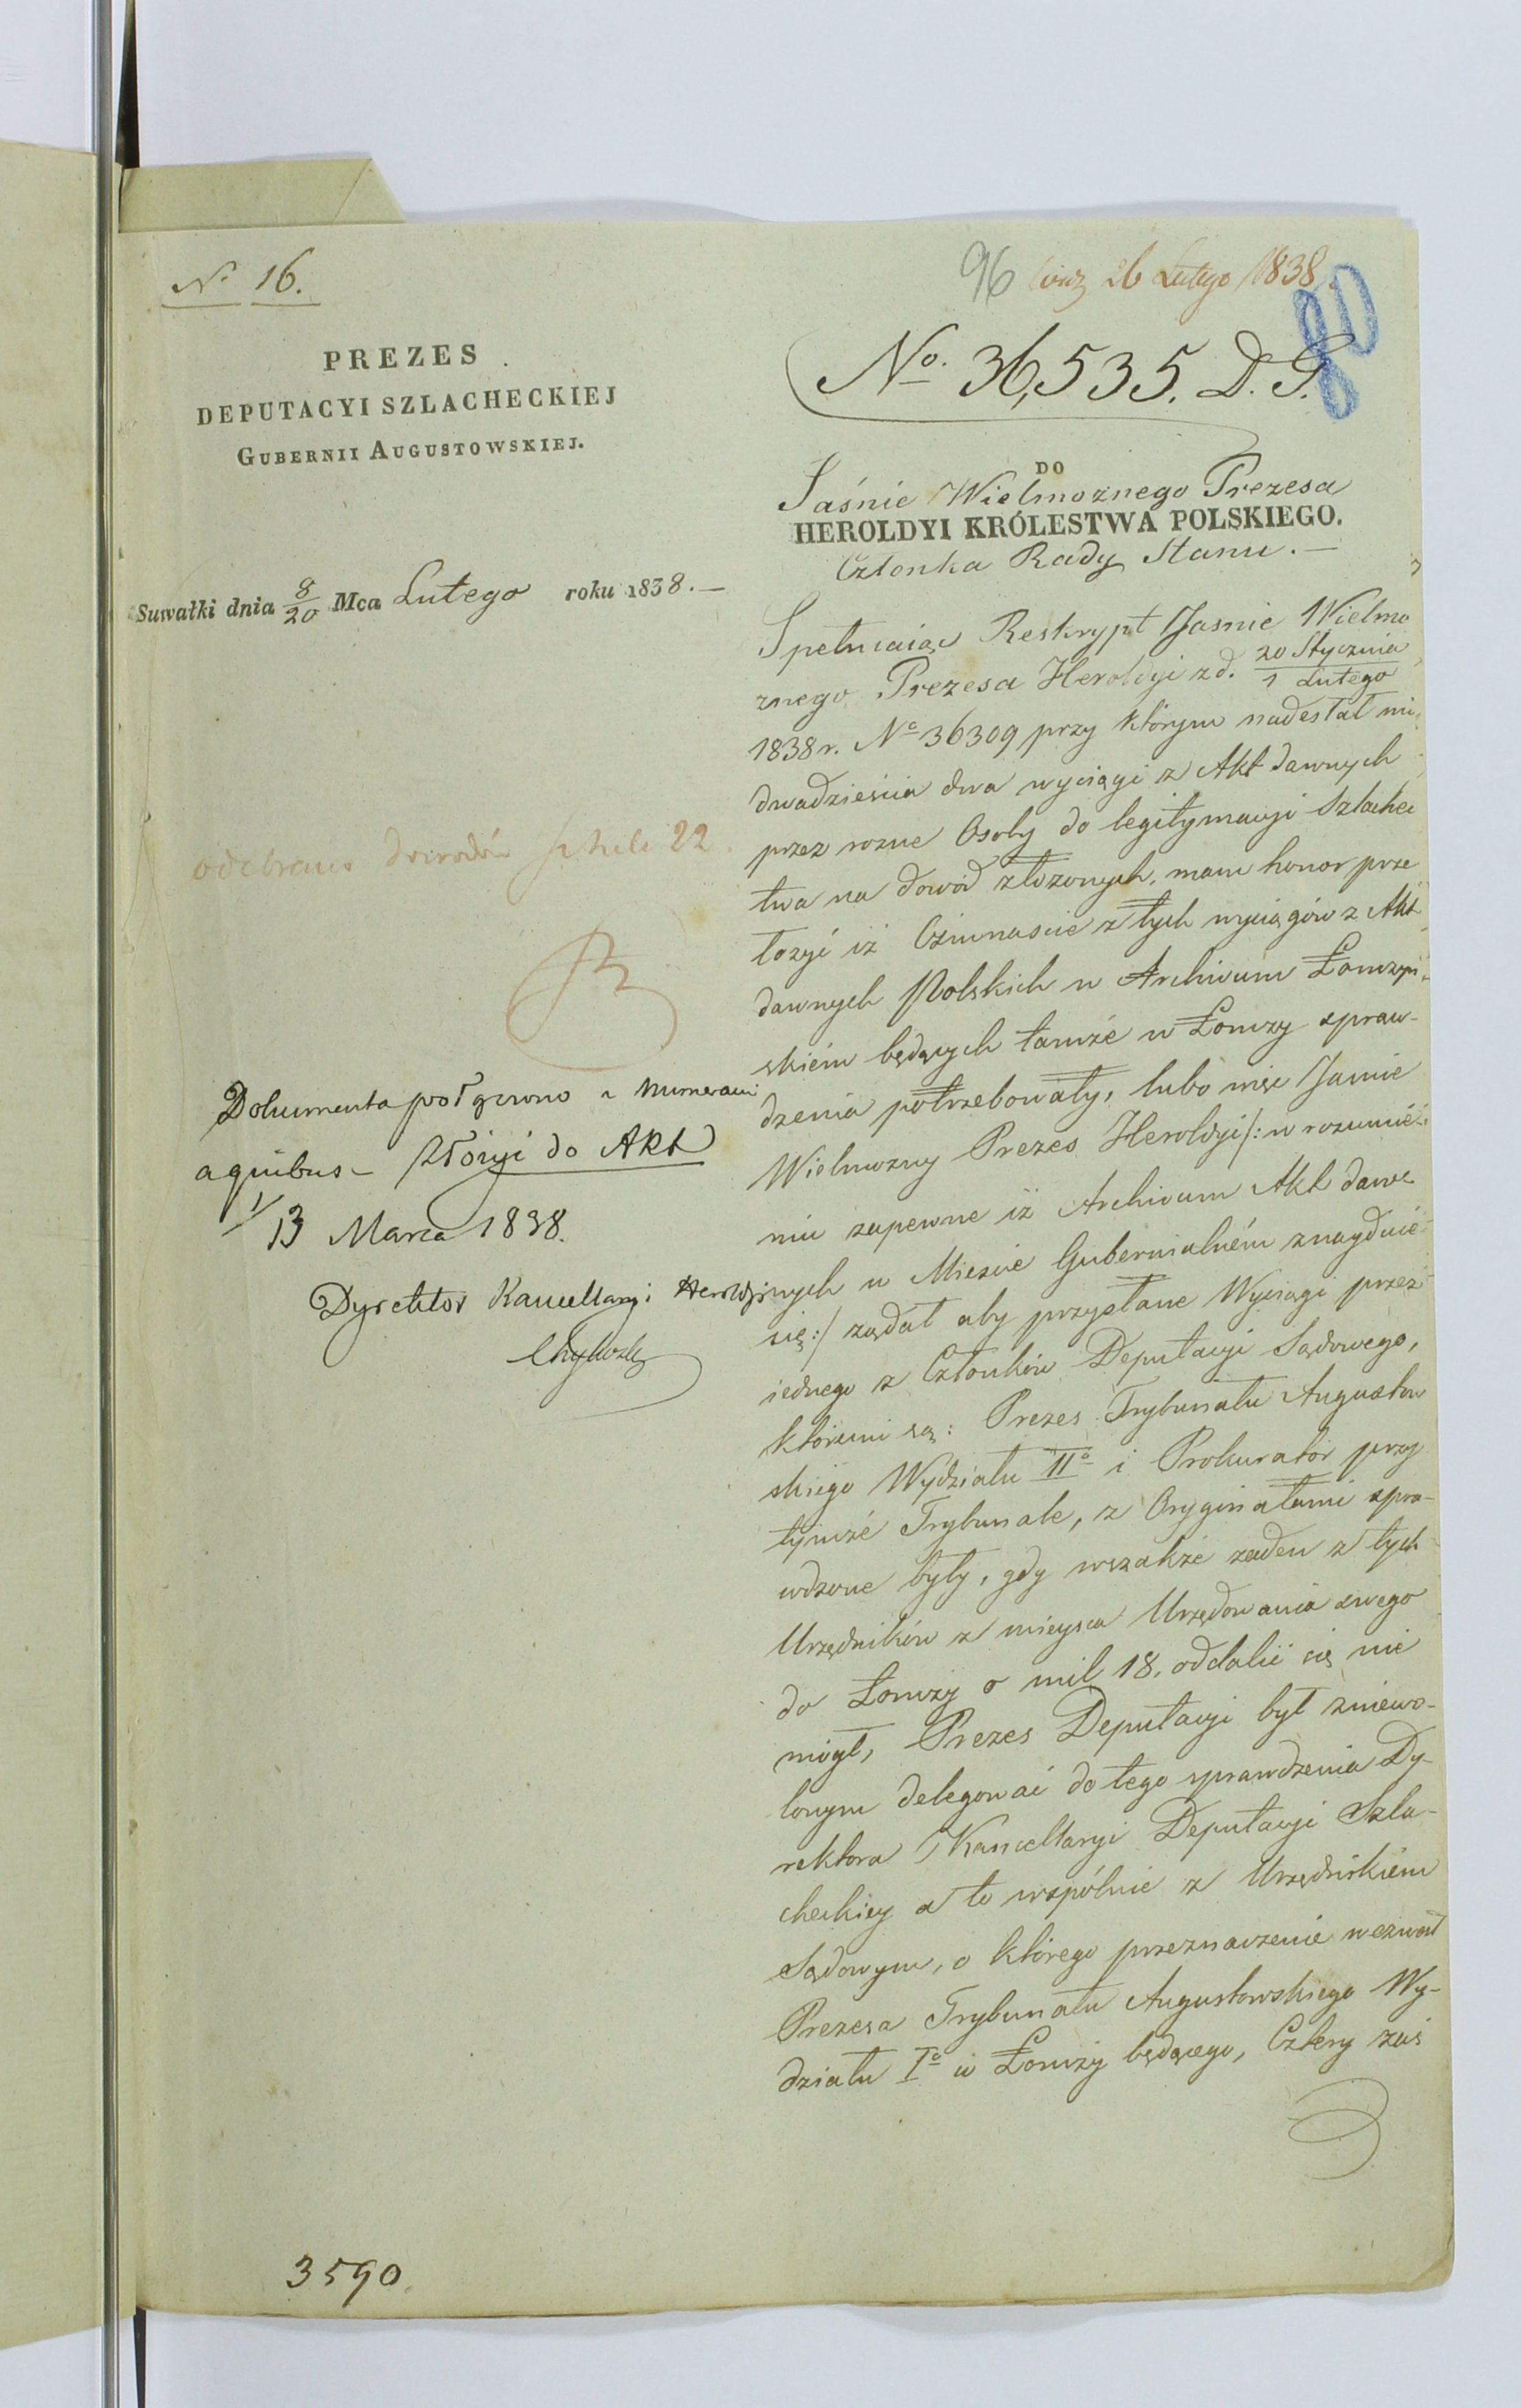 No 16.
PREZES
DEPUTACYI SZLACHECKIEJ
GUBERNII AUGUSTOWSKIEJ.
Suwałki dnia 8/20 Mca Lutego roku 1838.—
odebrano dowodów sztuk 22
Dokumenta pod
aquibus – złożyć do Akt
1/13 Marca 1838.
Dyrektor Kancellaryi Heroldyi
3590
96 26 Lutego 1838
80
No. 36,535. D. G.
DO
Jaśnie Wielmoznego Prezesa
HEROLDYI KRÓLESTWA POLSKIEGO.
Członka Rady Stanu.—
Spełniaiąc Reskrypt Jasnie Wielmo
znego Prezesa Heroldyi z d. 20 Stycznia / 1 Lutego
1838 r. No 36309 przy którym nadesłał mi
dwadzieścia dwa wyciągi z Akt dawnych
przez rozne Osoby do legitymacyi Szlachec
twa na dowód złozonych, mam honor prze
łozyć iż Ośmnascie z tych wyciągów z Akt
dawnych Polskich w Archivum Łomzyń-
skiém będących tamże w Łomzy spraw-
dzenia potrzebowały, lubo więc Jasnie
Wielmozny Prezes Heroldyi /: w rozumie-
niu zapewne iż Archivum Akt dawe
nych w Miescie Gubernialném znayduie
się :/ ządał aby przysłane Wyciągi przez
iednego z Członków Deputacyi Sądowego,
któremi są: Prezes Trybunału Augustow
skiego Wydziału IIo i Prokurator przy
tymże Trybunale, z Oryginałami spra-
wdzone były, gdy wszakże zaden z tych
Urzędników z mieysca Urzędowania swego
do Łomzy o mil 18. oddalić się nie
mógł, Prezes Deputacyi był zniewo-
lonym delegować do tego sprawdzenia Dy-
rektora Kancellaryi Deputacyi Szla-
checkiey a to wspólnie z Urzędnikiem
Sądowym, o którego przeznaczenie wezwał
Prezesa Trybunału Augustowskiego Wy-
działu Io w Łomży będącego, Cztery zaś